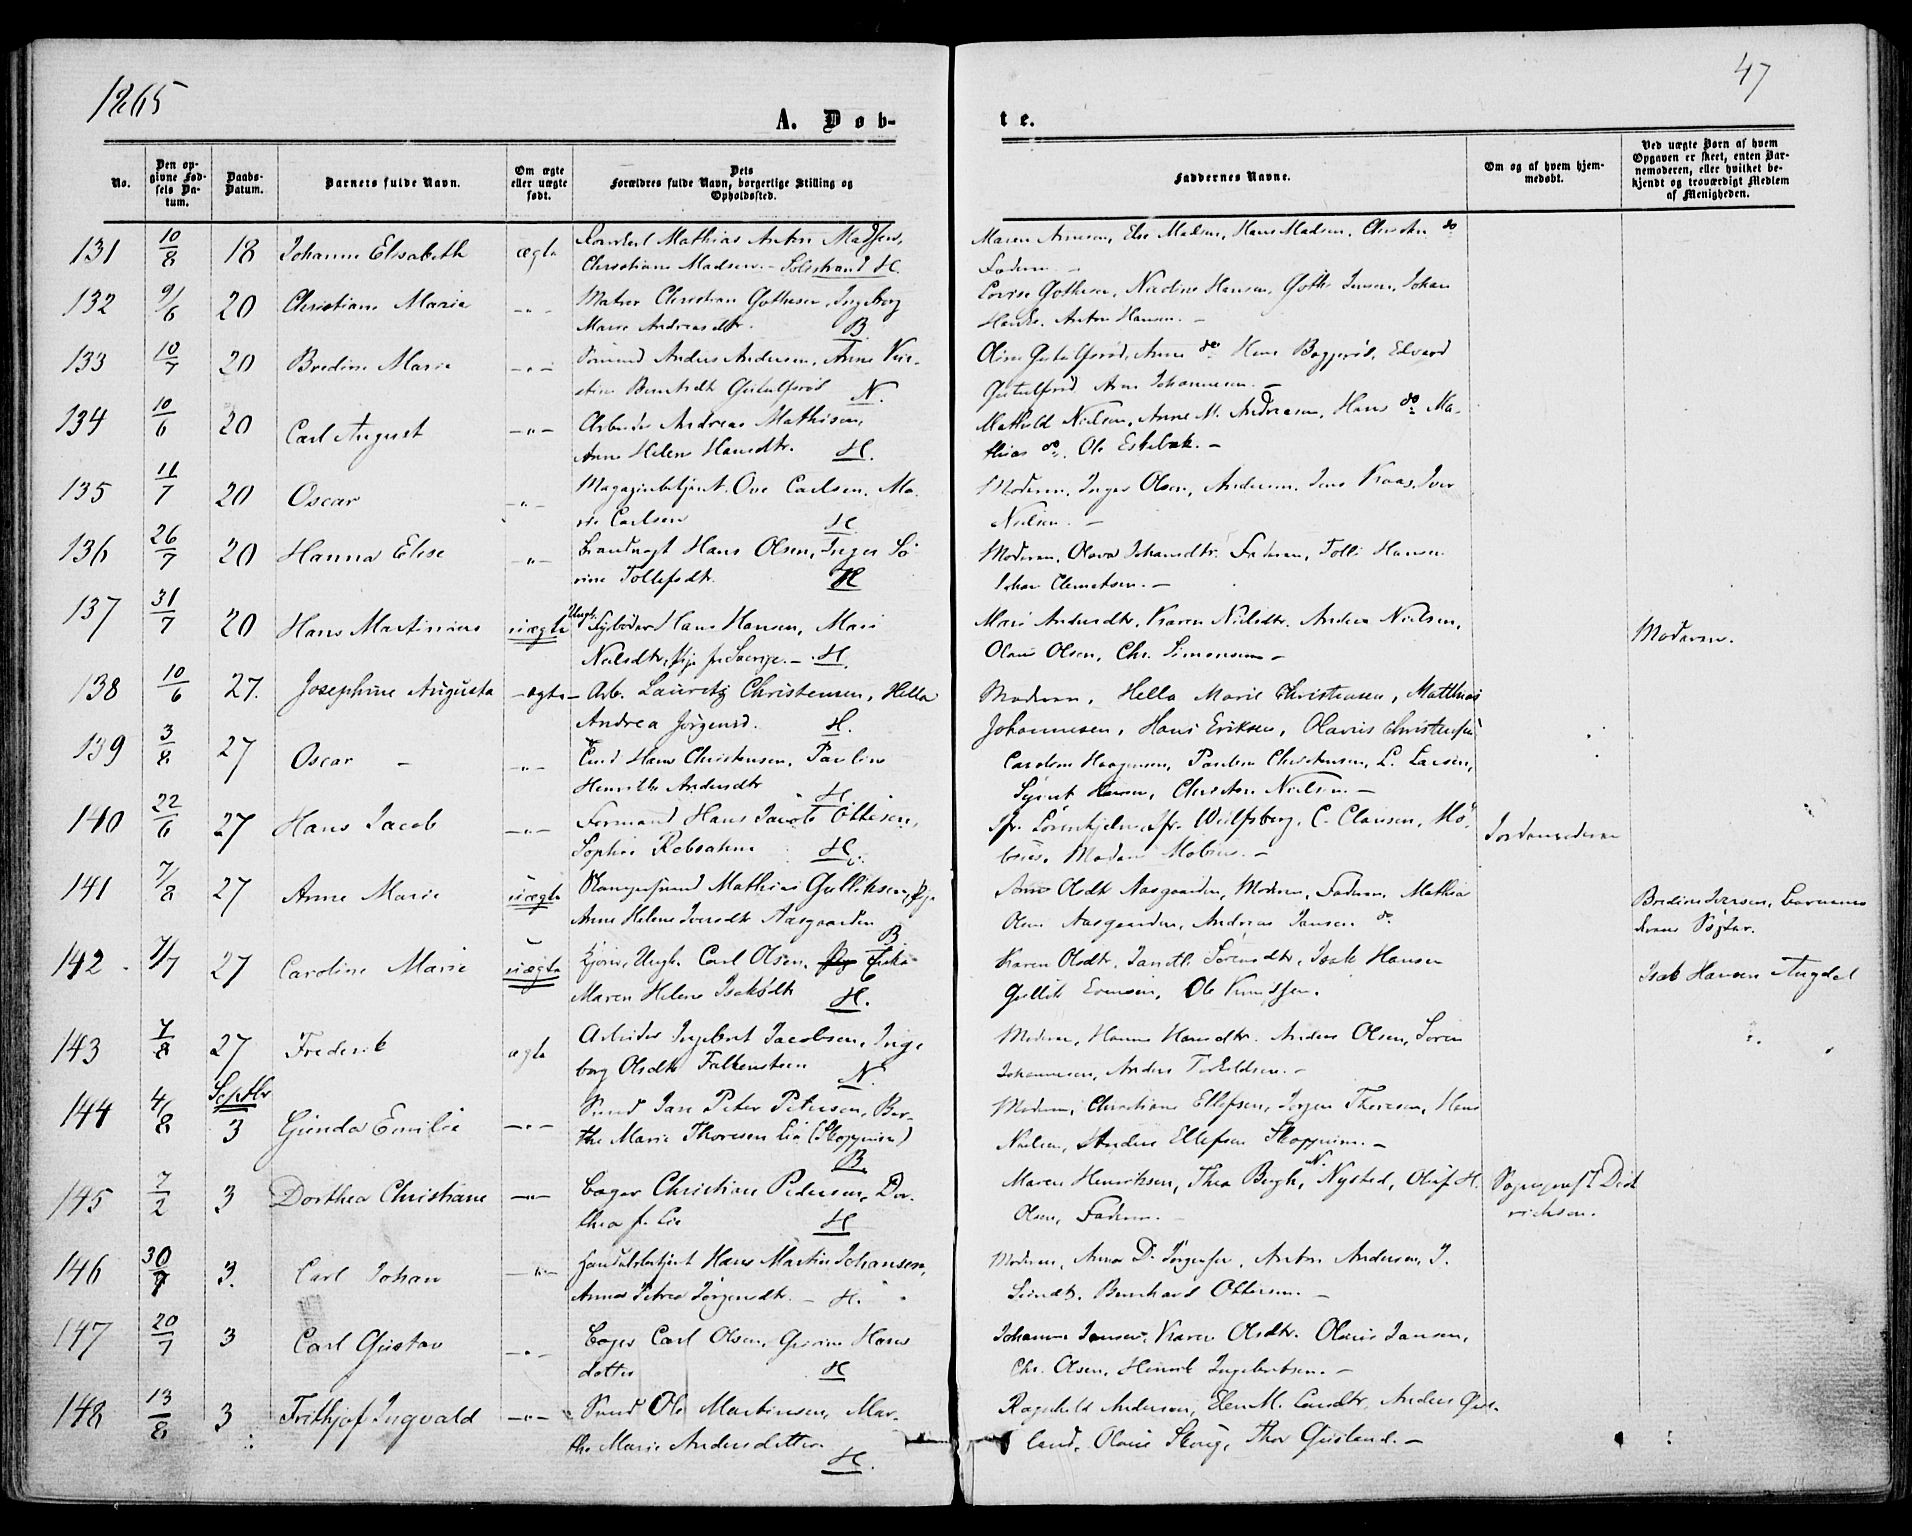 1865
47
A. Døb-
te.
No.
Den op-
givne Fød-
sels Da-
tum.
Daabs-
Datum.
Barnets fulde Navn.
Om ægte
eller uægte
født.
Dets
Forældres fulde Navn, borgerlige Stilling og
Opholdssted.
Faddernes Navne.
Om og af hvem hjem-
medøbt.
Ved uægte Børn af hvem
Opgaven er skeet, enten Bar-
nemoderen, eller hvilket be-
kjendt og troværdigt Medlem
af Menigheden.
131 10/8 18 Johanne Elisabeth ægte Mathias Anton Madsen,
Christiane Madsen. - Solistrand H.
Maren Arnesen, Else Madsen, Hans Madsen, do
Faderen. -
132 9/6 20 Christiane Marie -"- Matros Christian Gothesen, Ingeborg
Marie Andreasdtr. B.
Lovise Gothesen, Nadine Hansen, Gothe Jensen, Johan
Anton Hansen. -
133 10/7 20 Bredine Marie -"- Sømand Anders Andersen, Anne Kir-
stine Berntsdtr N.
Oline Anne do Hans Edvard
Arne Johannesen. -
134 10/6 20 Carl August -"- Arbeider Andreas Mathisen,
Anne Helene Hansdtr. H.
Mathild Nielsen, Anne M. Andreasen, Hans do Ma-
thias do, Ole Eskebæk. -
135 11/7 20 Oscar -"- Magazinbetjent Ove Carlsen, Ma-
rie Carlsen H.
Moderen, Inger Olsen, Andersen, Jens Kraas, Iver
Nielsen. -
136 26/7 20 Hanna Elise -"- Brandvagt Hans Olsen, Inger Sø-
rine Tollefsdtr. H
Moderen, Olava Johansdtr. Faderen, Tolle Hansen
Johan Clemetsen. -
137 31/7 20 Hans Martinius uægte Ungk. Hans Hansen, Mari
Nielsdtr, Pige fr Sverige. - H.
Mari Andersdtr, Karen Nielsdtr. Anders Nielsen,
Olaus Olsen, Chr. Simonsen -
Moderen.
138 10/6 27. Josephine Augusta - ægte - Arb. Lauritz Christensen, Hella
Andrea Jørgensd. H.
Moderen, Hella Marie Christiansen, Matthias
Johannesen, Hans Eriksen, Olavus Christensen
139 3/8 27 Oscar - -"- Hans Christensen, Pauline
Henriette Andersdtr H
Caroline Haagensen, Pauline Christensen, L. Larsen,
Sivert Hansen, Christen Nielsen. -
140 22/6 27 Hans Jacob -"- Formand Hans Jacob Ottesen,
Sophie Robsahm H.
Jfr. Lørenhjelm, Jfr. Wulfsberg, C. Clausen, Mø-
bius, Madam Møbius. -
Jordemoderen
141 7/8 27 Anne Marie uægte Ungsmand Mathias Gulliksen, Pige
Anne Helene Iversdtr Aasgaarden B.
Anne Olsdtr Aasgaarden, Moderen, Faderen, Mathias
Olsen Aasgaarden, Andreas Jansen do
Bredine Iversen, Barnemo-
derens Søster.
142 7/7 27 Caroline Marie uægte Ungk. Carl Olsen, Enke
Maren Helene Isaksdtr H.
Karen Olsdtr, Janeth Sørensdtr, Isak Hansen
Gullik Evensen, Ole Knudsen.
Isak Hansen Augdal
143 7/8 27 Frederik ægte Arbeider Ingebret Jacobsen, Inge-
borg Olsdtr Falkensteen N.
Moderen, Hanne Hansdtr. Anders Olsen, Søren
Johannesen, Anders Torkildsen. -
Septbr
144 4/8 3 Gunda Emilie -"- Sømd Jan Peter Petersen, Ber-
the Marie Thoresen Lie (Skoppum) B.
Moderen, Christiane Ellefsen, Jørgen Thoresen, Hans
Nielsen, Anders Ellefsen Skoppum. -
145 7/2 3 Dorthea Christiane -"- Bager Christian Pedersen, Dor-
thea f. Lie H
Maren Henriksen, Thea Bergh, N. Nysted, Oluf H.
Olsen, Faderen. -
Sogneprest Didrichsen.
146 30/7 3. Carl Johan -"- Handelsbetjent Hans Martin Johansen,
Anna Petrea Jørgensdtr. - H.
Moderen, Anna D. Jørgensen, Anton Andersen, J.
Sundt, Bernhard Ottersen. -
147 20/7 3 Carl Gustav -"- Bager Carl Olsen, Gurine Hans
datter H
Johanne Jansen, Karen Olsdtr. Olaus Jansen,
Chr. Olsen, Henrik Ingebretsen. -
148 13/8 3 Frithjof Ingvald -"- Sømd Ole Martinsen, Mar-
the Marie Andersdatter. H.
Ragnhild Andersen, Elen M. Anders Gus-
land, Olaus Skoug, Thor Gusland. -